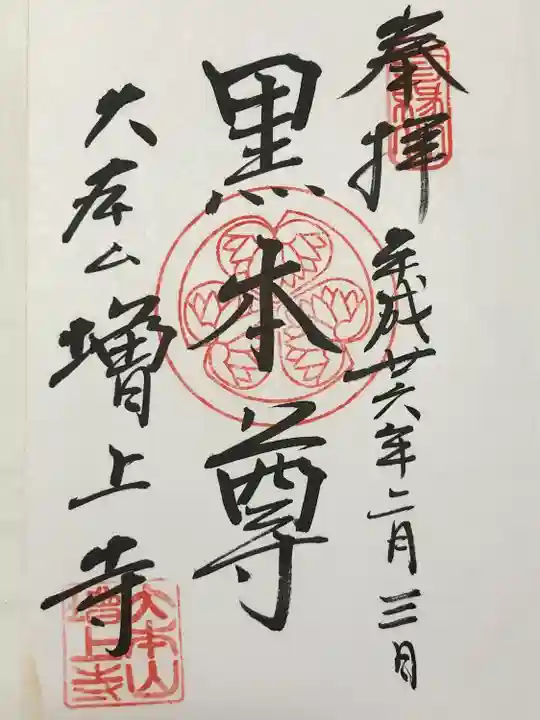 奉拝 平成廿六年二月三日
黒本尊
大本山 増上寺
大本山
増上寺